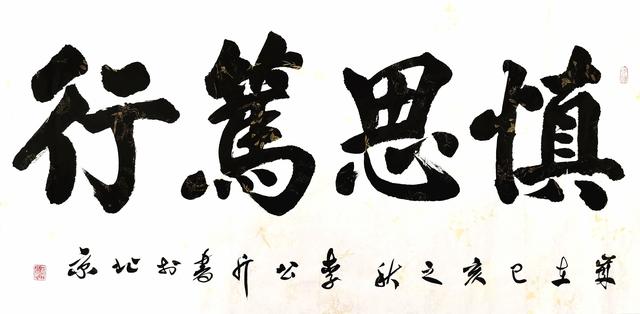 慎思篤行
歲在己亥之秋李公書於北京